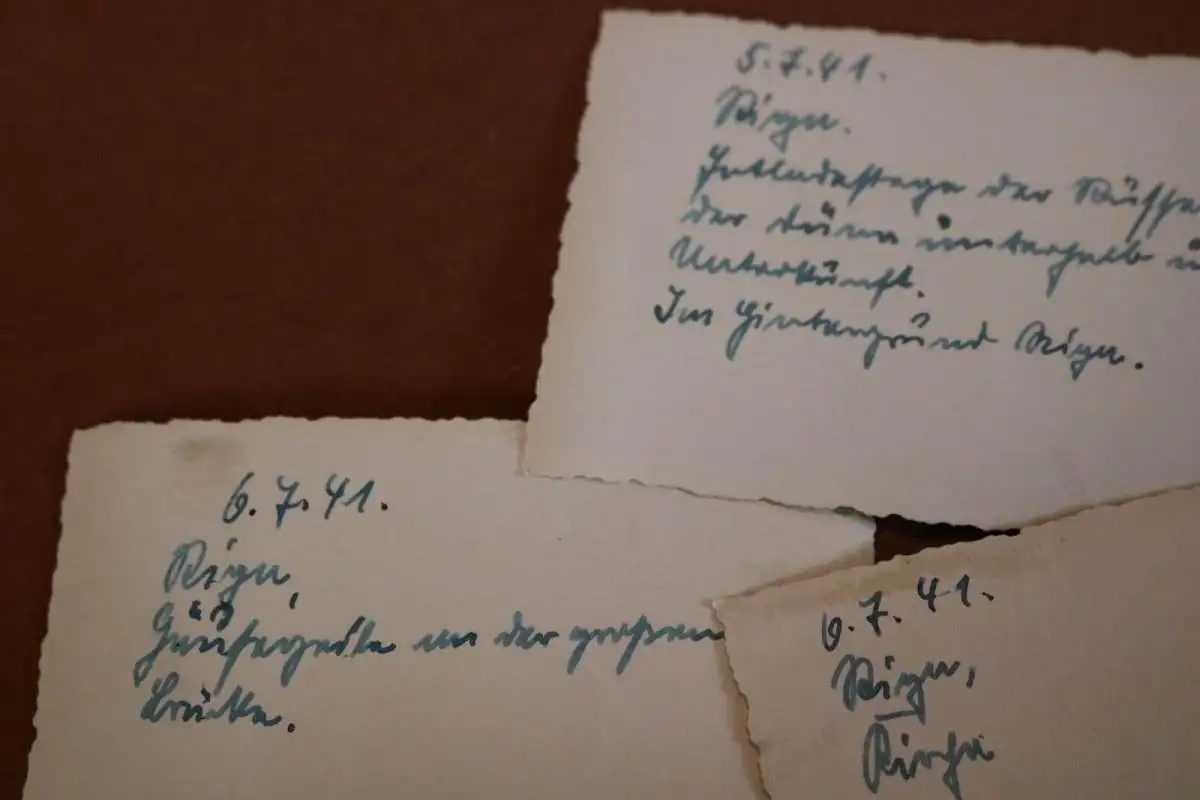 5.7.41.
Riga.
Entladestege der Russen
der Düna unterhalb
Unterkunft.
Im Hintergrund Riga.
6.7.41.
Riga,
Häuserzeile an der großen
Brücke.
6.7.41.
Riga,
Kirche